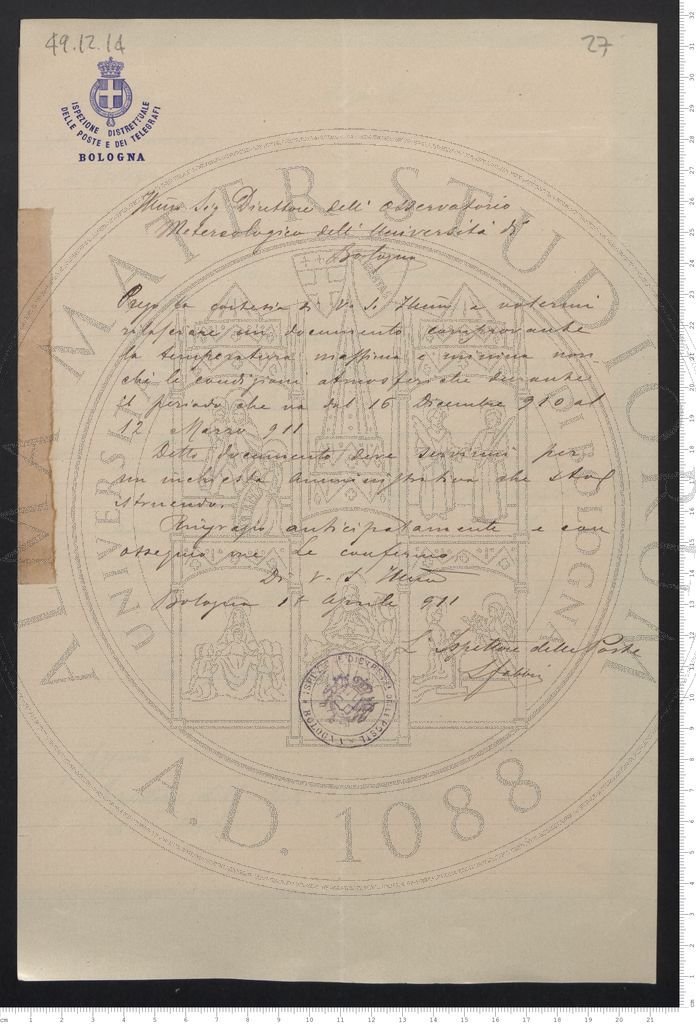 49.12.14
27
ISPEZIONE DISTRETTUALE
DELLE POSTE E DEI TELEGRAFI
BOLOGNA
Illmo Sig Direttore dell' Osservatorio
Metereologico dell' Università di
Bologna
Prego la cortesia di V. S. Illma e volermi
rilasciare un documento comprovante
la temperatura massima e minima non
chè le condizioni atmosferiche durante
il periodo che va dal 16 Dicembre 910 al
12 Marzo 911
Detto documento deve servirmi per
un inchiesta Amministrativa che sto
istruendo.
Ringrazio anticipatamente e con
ossequio me Le confermo
Di V. S. Illma
Bologna Aprile 911
L'Ispettore delle Poste
ALMA MATER STUDIORUM
A.D. 1088